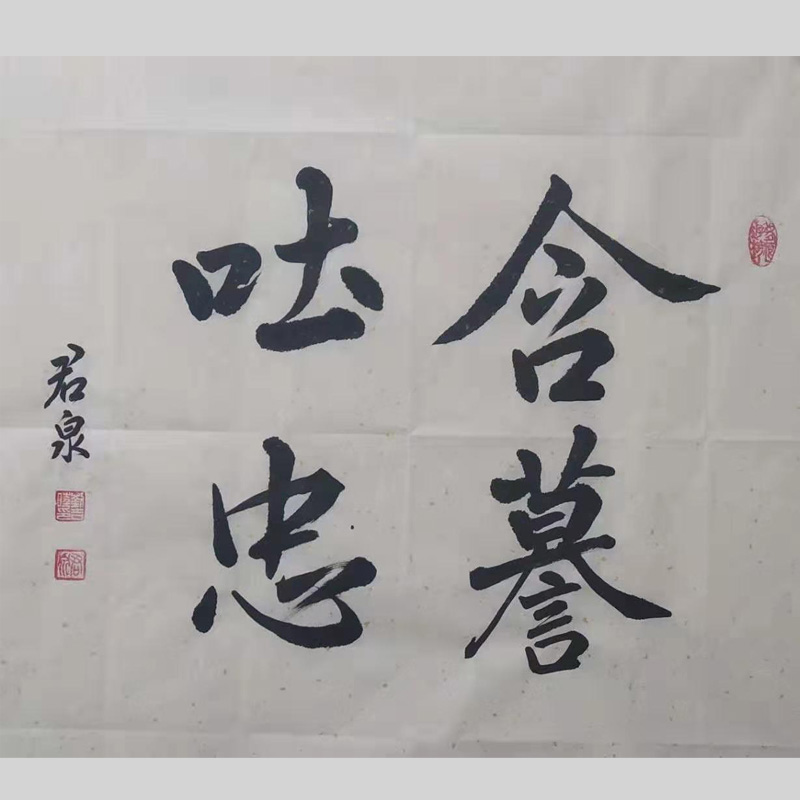 含謩
吐忠
君泉